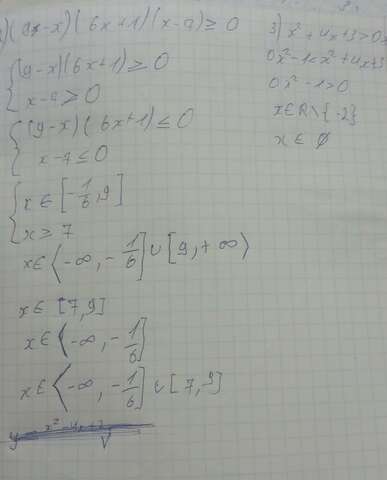 )(9x-x)(6x+1)(x-7)≥0
{(9-x)(6x+1)≥0
x-7≥0
{(9-x)(6x+1)≤0
x-7≤0
{x∈[-1/6,9]
x≥7
x∈⟨-∞,-1/6]∪[9,+∞⟩
x∈[7,9]
x∈⟨-∞,-1/6]
x∈⟨-∞,-1/6]∪[7,9]
3) x²+4x+3>0x
0x²-1<x²+4x+3
0x²-1>0
x∈R\{-2}
x∈∅